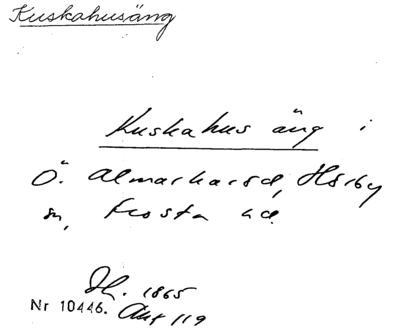 Kuskahusäng
Kuskahus äng i
Ö. Almarkared, Hörby
sn, Frosta hd.
1865
Nr 10446. Akt 119